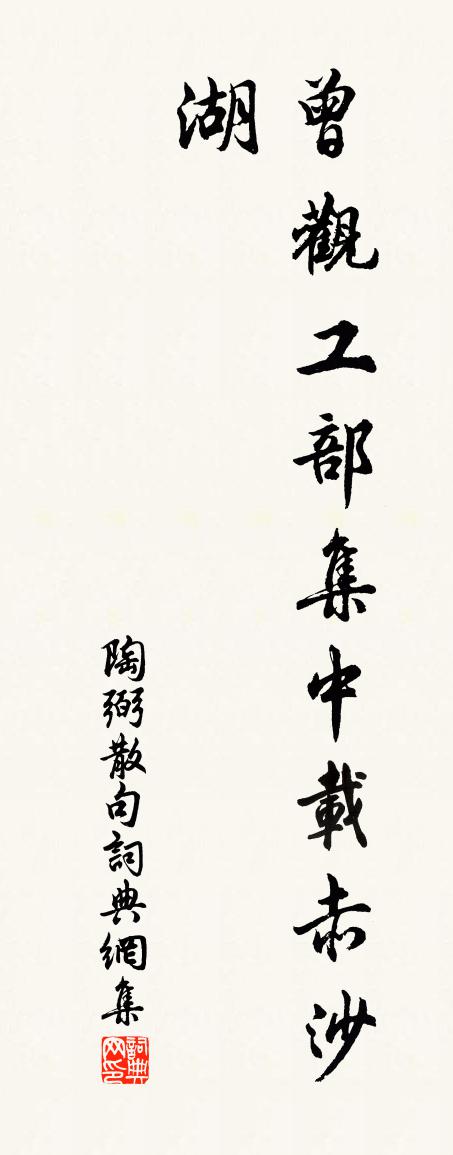 曾觀工部集中載赤沙
湖
陶弼散句詞典網集
詞典网印